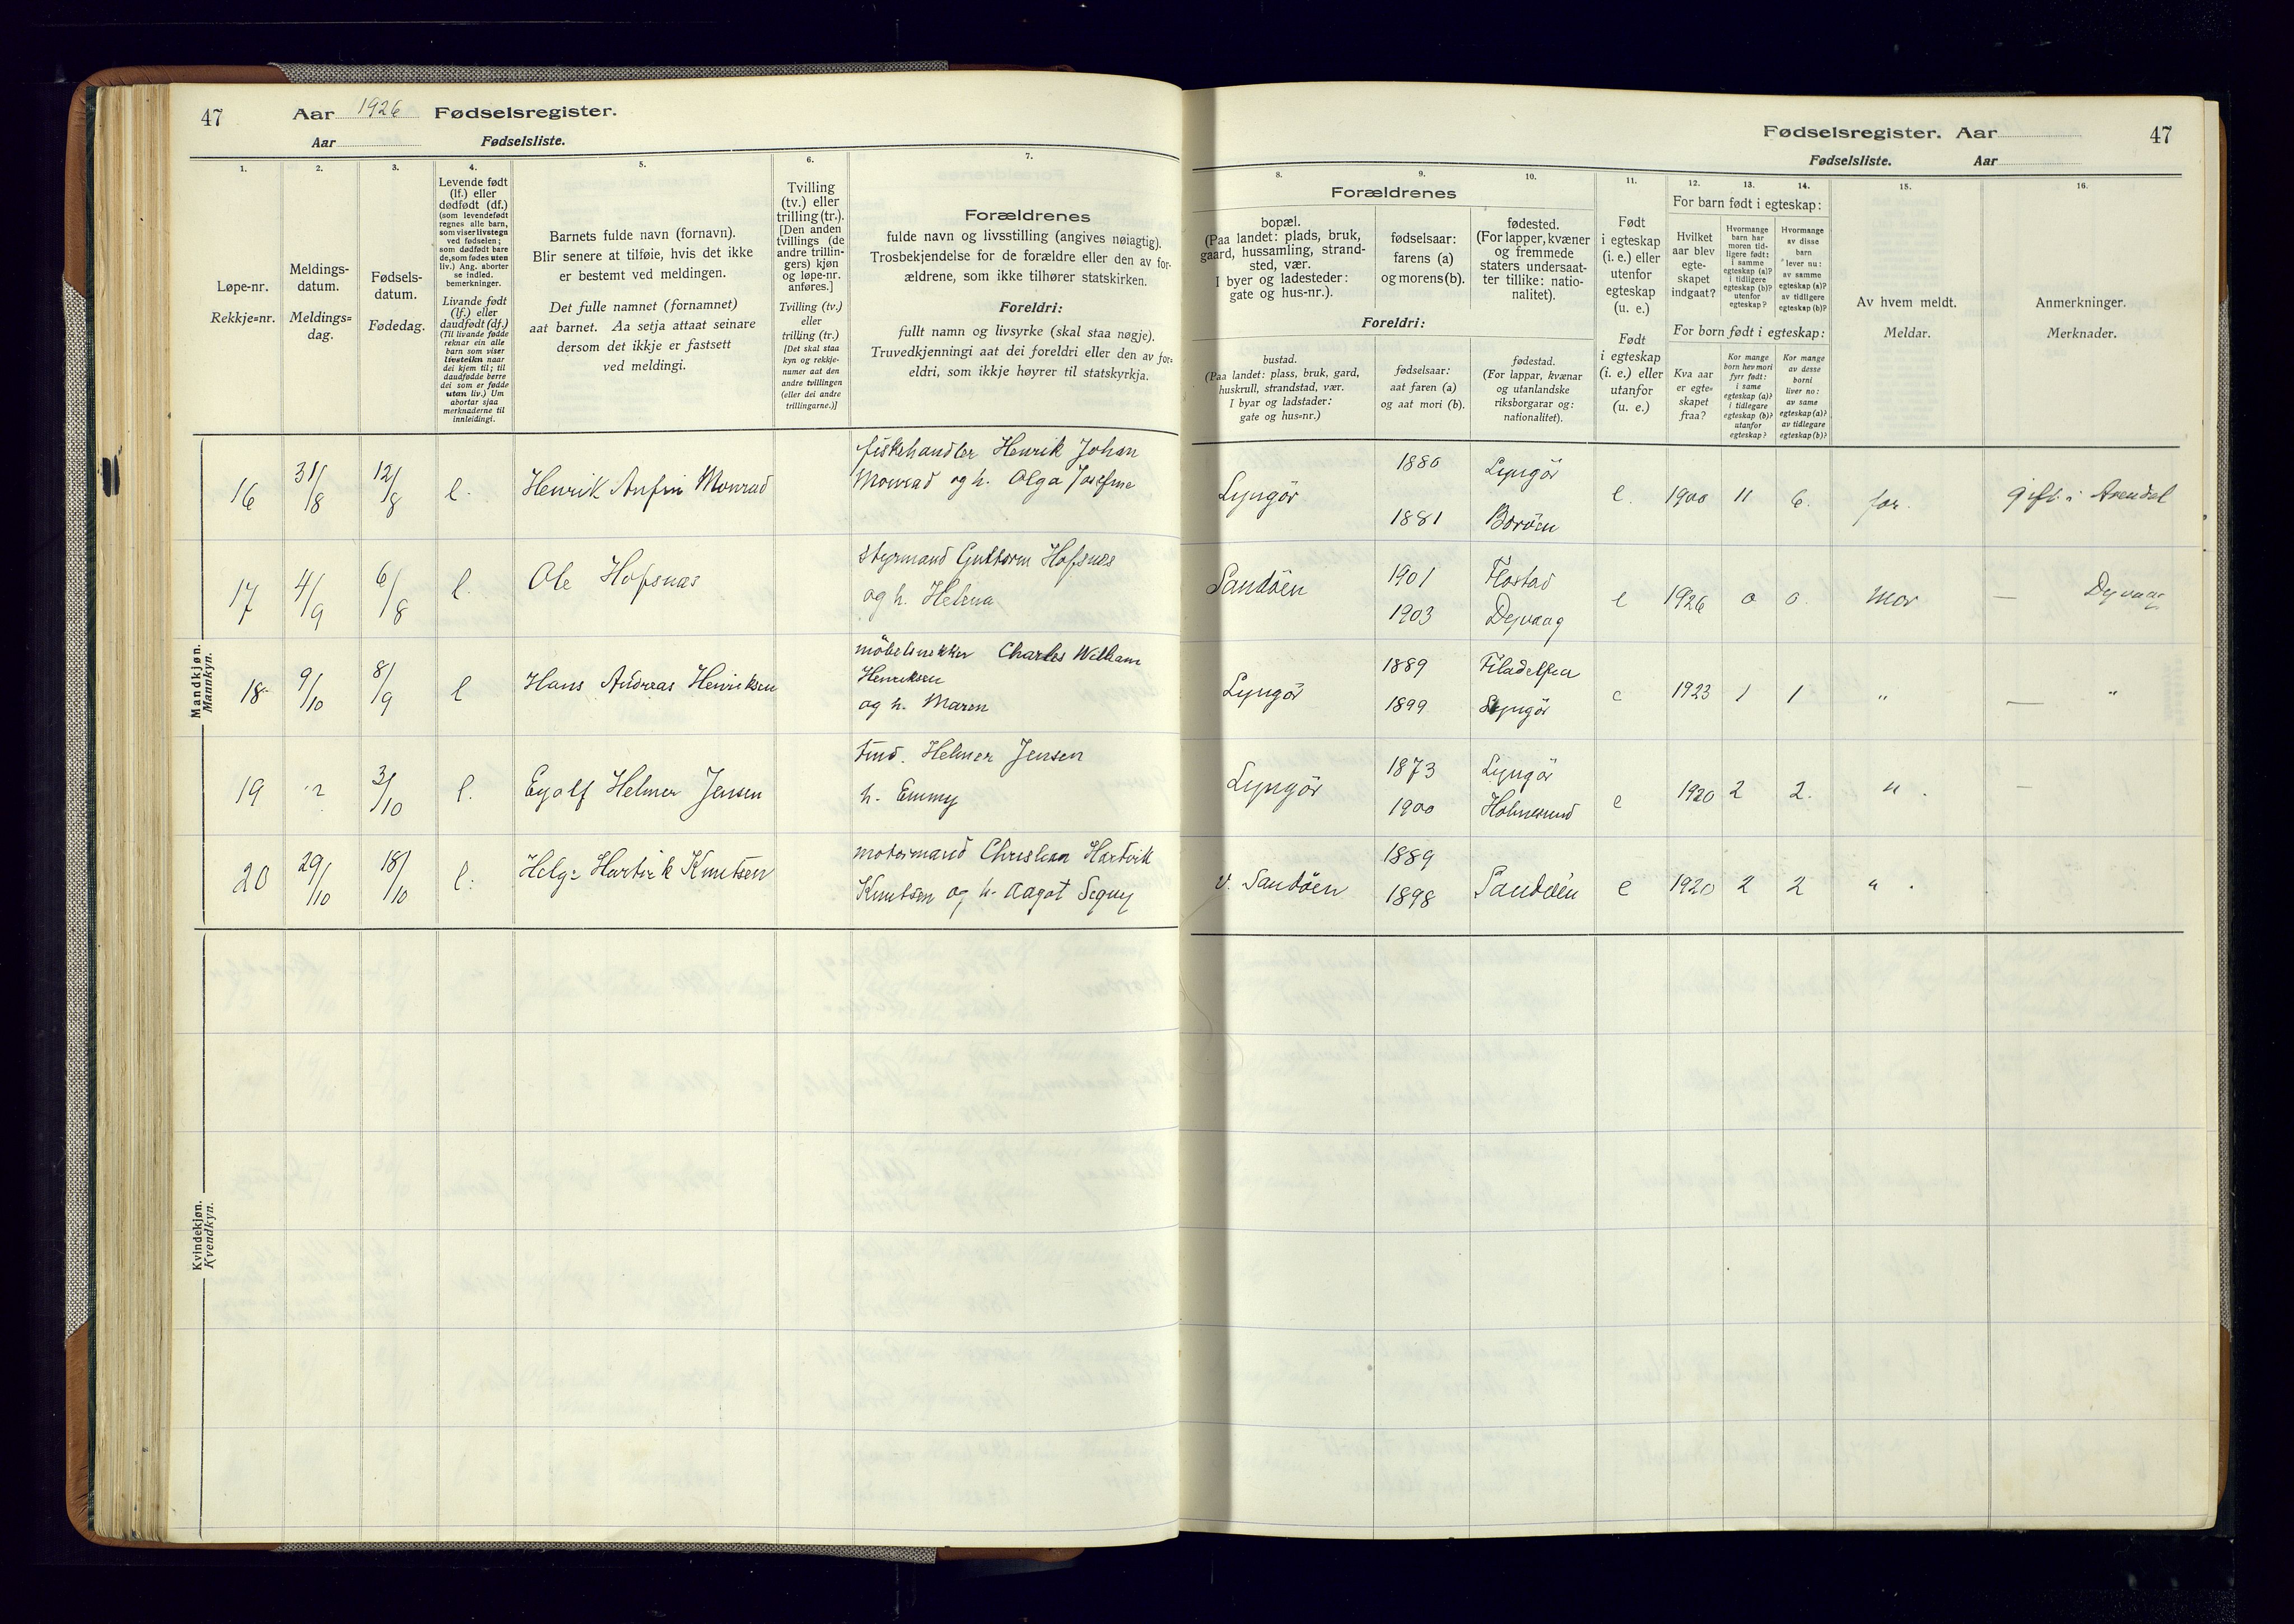 47 Aar 1926 Fødselsregister.
Aar Fødselsliste.
1. 2. 3. 4. 5. 6. 7.
Løpe-nr.
Rekkje=nr.
Meldings-
datum.
Meldings=
dag.
Fødsels-
datum.
Fødedag.
Levende født
(lf.) eller
dødfødt (df.)
(som levendefødt
regnes alle barn,
som viser livstegn
ved fødselen;
som dødfødt bare
de, som fødes uten
liv.) Ang. aborter
se indled.
bemerkninger.
Livande født
(lf.) eller
daudfødt (df.)
(Til livande fødde
reknar ein alle
barn som viser
livsteikn naar
dei kjem til; til
daudfødde berre
dei som er fødde
utan liv.) Um
abortar sjaa
merknaderne til
innleidingi.
Barnets fulde navn (fornavn).
Blir senere at tilføie, hvis det ikke
er bestemt ved meldingen.
Det fulle namnet (fornamnet)
aat barnet. Aa setja attaat seinare
dersom det ikkje er fastsett
ved meldingi.
Tvilling
(tv.) eller
trilling (tr.).
[Den anden
tvillings (de
andre trillin-
gers) kjøn
og løpe-nr.
anføres.]
Tvilling (tv.)
eller
trilling (tr.)
[Det skal staa
kyn og rekkje-
numer aat den
andre tvillingen
(eller dei andre
trillingarne.)]
Forældrenes
fulde navn og livsstilling (angives nøiagtig).
Trosbekjendelse for de forældre eller den av for-
ældrene, som ikke tilhører statskirken.
Foreldri:
fullt namn og livsyrke (skal staa nøgje).
Truvedkjenningi aat dei foreldri eller den av for=
eldri, som ikkje høyrer til statskyrkja.
Mandkjøn.
Mannkyn.
16 31/8 12/8 l. Henrik Anfin Monrad fiskehandler Henrik Johan
Monrad og h. Olga Josefine
17 4/9 6/8 l. Ole Hofsnæs styrmand Guttorm Hofsnæs
og h. Helena
18 9/10 8/9 l Hans Andreas Henriksen möbelsnekker Charles William
Henriksen
og h. Maren
19 " 3/10 l. Eyolf Helmer Jensen Helmer Jensen
h. Emmy
20 29/10 18/10 l. Helge Hartvik Knutsen motormand Christian Hartvik
Knutsen og h. Aagot Signy
Kvindekjøn.
Kvendkyn.
Fødselsregister. Aar 47
Fødselsliste. Aar
8. 9. 10. 11. 12. 13. 14. 15. 16.
Forældrenes
bopæl.
(Paa landet: plads, bruk,
gaard, hussamling, strand-
sted, vær.
I byer og ladesteder:
gate og hus-nr.).
fødselsaar:
farens (a)
og morens (b).
fødested.
(For lapper, kvæner
og fremmede
staters undersaat-
ter tillike: natio-
nalitet).
Foreldri:
bustad.
(Paa landet: plass, bruk, gard,
huskrull, strandstad, vær.
I byar og ladstader:
gate og hus=nr.)
fødselsaar:
aat faren (a)
og aat mori (b).
fødestad.
(For lappar, kvænar
og utanlandske
riksborgarar og:
nationalitet).
Født
i egteskap
(i. e.) eller
utenfor
egteskap
(u. e.)
Født
i egteskap
(i. e.) eller
utanfor
(u. e.)
For barn født i egteskap:
Hvilket
aar blev
egte-
skapet
indgaat?
Hvormange
barn har
moren tid-
ligere født:
i samme
egteskap (a)?
i tidligere
egteskap (b)?
utenfor
egteskap?
Hvormange
av disse
barn
lever nu:
av samme
egteskap (a)?
av tidligere
egteskap (b)?
For born født i egteskap:
Kva aar
er egte=
skapet
fraa?
Kor mange
born hev mori
fyrr født:
i same
egteskap (a)?
i tidlegare
egteskap (b)?
utanfor
egteskap?
Kor mange
av desse
borni
liver no:
av same
egteskap (a)?
av tidlegare
egteskap (b)?
Av hvem meldt.
Meldar.
Anmerkninger.
Merknader.
Lyngör 1880 Lyngör
1881 Boröen e. 1900 11 6. far. gift i Arendal
Sandöen 1901 Flostad
1903 Dypvaag e 1926 0 0. mor — Dypvaag
Lyngör 1889 Filadelfia
1899 Lyngör e 1923 1 1 " — "
Lyngör 1873 Lyngör
1900 Holmesund e 1920 2 2. " . —
v. Sandöen 1889
1898 Sandöen e 1920 2 2 " .